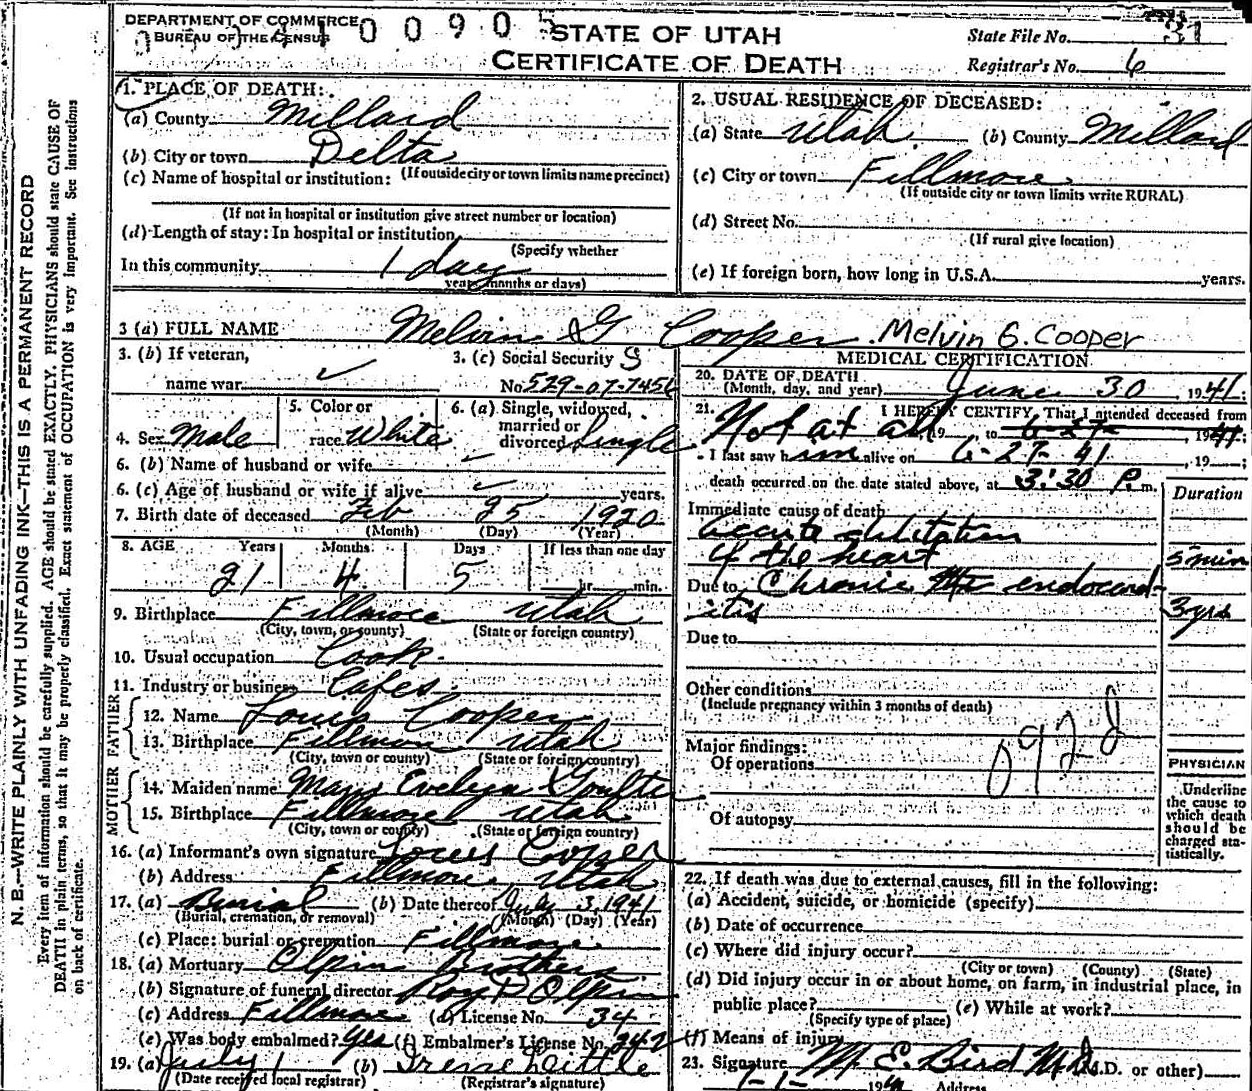 DEPARTMENT OF COMMERCE
BUREAU OF THE CENSUS
0 0 9 0 5
STATE OF UTAH
CERTIFICATE OF DEATH
State File No. 31
Registrar's No. 6
N. B.—WRITE PLAINLY WITH UNFADING INK—THIS IS A PERMANENT RECORD
Every item of information should be carefully supplied. AGE should be stated EXACTLY. PHYSICIANS should state CAUSE OF
DEATH in plain terms, so that it may be properly classified. Exact statement of OCCUPATION is very important. See instructions
on back of certificate.
1. PLACE OF DEATH:
(a) County Millard
(b) City or town Delta
(If outside city or town limits name precinct)
(c) Name of hospital or institution:
(If not in hospital or institution give street number or location)
(d) Length of stay: In hospital or institution
(Specify whether
In this community 1 day
years, months or days)
2. USUAL RESIDENCE OF DECEASED:
(a) State Utah (b) County Millard
(c) City or town Fillmore
(If outside city or town limits write RURAL)
(d) Street No.
(If rural give location)
(e) If foreign born, how long in U.S.A. years.
3 (a) FULL NAME Melvin G Cooper Melvin G. Cooper
3. (b) If veteran,
name war
3. (c) Social Security S
No. 529-07-7456
4. Sex Male
5. Color or
race White
6. (a) Single, widowed,
married or
divorced Single
6. (b) Name of husband or wife
6. (c) Age of husband or wife if alive years.
7. Birth date of deceased Feb 25 1920
(Month) (Day) (Year)
8. AGE Years Months Days If less than one day
21 4 5 hr. min.
9. Birthplace Fillmore Utah
(City, town, or county) (State or foreign country)
10. Usual occupation Cook
11. Industry or business Cafes
FATHER
12. Name Louis Cooper
13. Birthplace Fillmore Utah
(City, town or county) (State or foreign country)
MOTHER
14. Maiden name Mary Evelyn
15. Birthplace Fillmore Utah
(City, town or county) (State or foreign country)
16. (a) Informant's own signature Louis Cooper
(b) Address Fillmore Utah
17. (a) Burial (b) Date thereof July 3, 1941
(Burial, cremation, or removal) (Month) (Day) (Year)
(c) Place: burial or cremation Fillmore
18. (a) Mortuary Olpin Brothers
(b) Signature of funeral director Roy P Olpin
(c) Address Fillmore (d) License No. 34
(e) Was body embalmed? Yes (f) Embalmer's License No. 242
19. (a) July 1 (b) Irene
(Date received local registrar) (Registrar's signature)
MEDICAL CERTIFICATION
20. DATE OF DEATH
(Month, day, and year) June 30 1941;
21. I HEREBY CERTIFY, That I attended deceased from
Not at all, 19 to 6-27- , 1941;
I last saw him alive on 6-27-41, 19 ;
death occurred on the date stated above, at 3:30 P. m.
Duration
Immediate cause of death
accute
of the heart 5 min
Due to Chronic endocard-
itis 3 yrs
Due to
Other conditions
(Include pregnancy within 3 months of death)
092d
Major findings:
Of operations
Of autopsy
PHYSICIAN
Underline
the cause to
which death
should be
charged sta-
tistically.
22. If death was due to external causes, fill in the following:
(a) Accident, suicide, or homicide (specify)
(b) Date of occurrence
(c) Where did injury occur?
(City or town) (County) (State)
(d) Did injury occur in or about home, on farm, in industrial place, in
public place? (e) While at work?
(Specify type of place)
(f) Means of injury
23. Signature M. E. Bird M.D. (M.D. or other)
Address